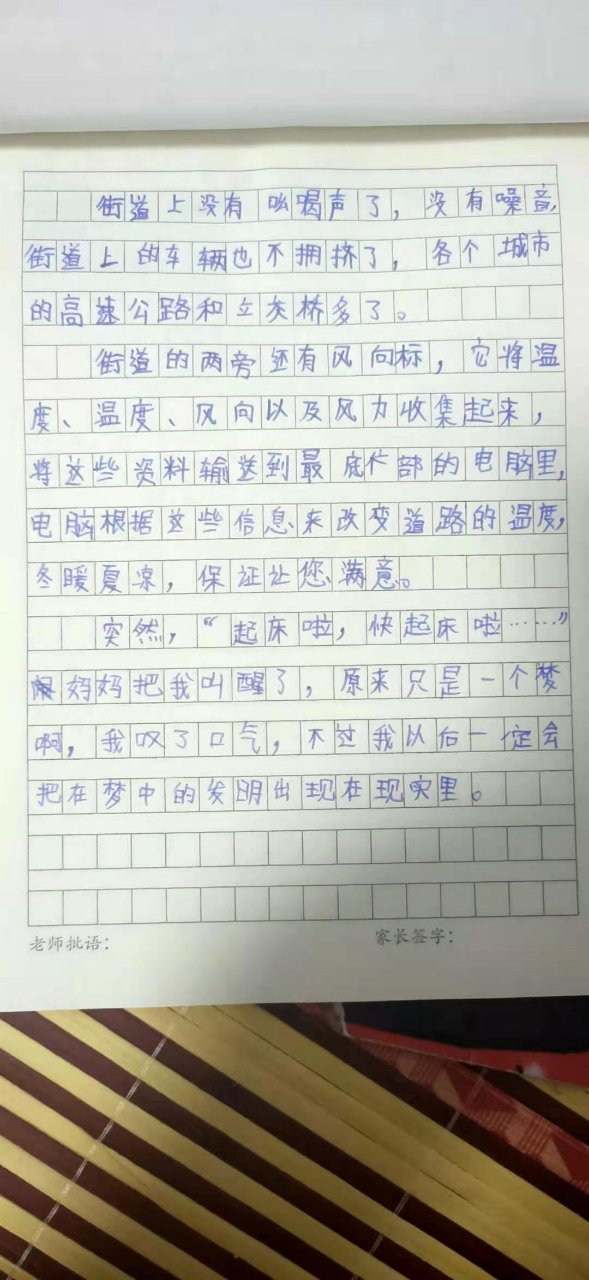 街道上没有吆喝声了，没有噪音，
街道上的车辆也不拥挤了，各个城市
的高速公路和立交桥多了。
街道的两旁还有风向标，它将温
度、温度、风向以及风力收集起来，
将这些资料输送到最底部的电脑里，
电脑根据这些信息来改变道路的温度，
冬暖夏凉，保证让您满意。
突然，“起床啦，快起床啦……”
妈妈把我叫醒了，原来只是一个梦
啊，我叹了口气，不过我以后一定会
把在梦中的发明出现在现实里。
老师批语：
家长签字：